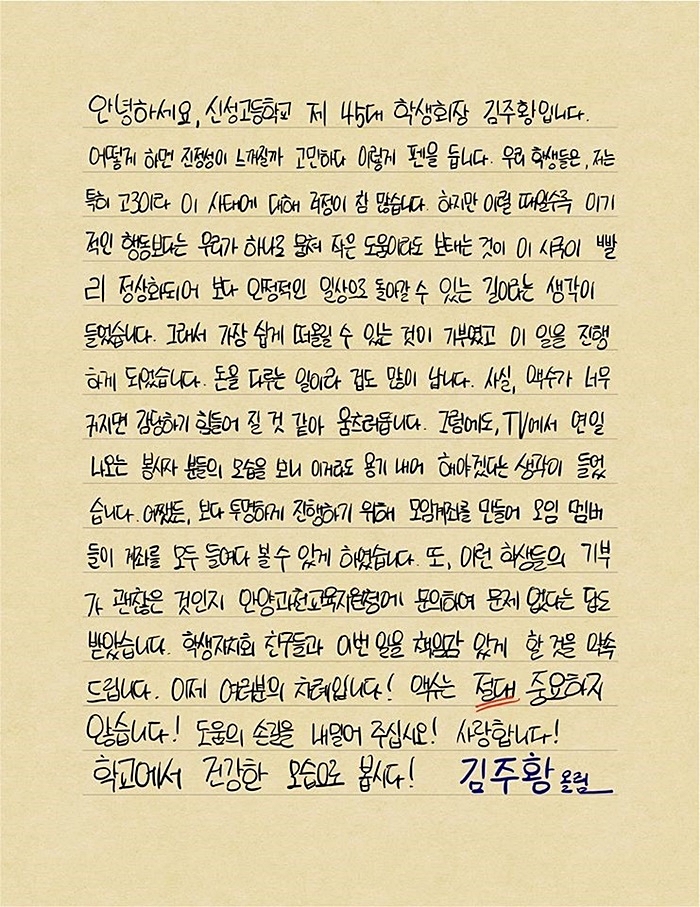 안녕하세요, 신성고등학교 제 45대 학생회장 김주황입니다.
어떻게 하면 진정성이 느껴질까 고민하다 이렇게 펜을 듭니다. 우리 학생들은, 저는
특히 고3이라 이 사태에 대해 걱정이 참 많습니다. 하지만 이럴 때일수록 이기
적인 행동보다는 우리가 하나로 뭉쳐 작은 도움이라도 보태는 것이 이 시국이 빨
리 정상화되어 보다 안정적인 일상으로 돌아갈 수 있는 길이라는 생각이
들었습니다. 그래서 가장 쉽게 떠올릴 수 있는 것이 기부였고 이 일을 진행
하게 되었습니다. 돈을 다루는 일이라 겁도 많이 납니다. 사실, 액수가 너무
커지면 감당하기 힘들어 질 것 같아 움츠러듭니다. 그럼에도, TV에서 연일
나오는 봉사자 분들의 모습을 보니 이거라도 용기 내어 해야겠다는 생각이 들었
습니다. 어쨌든, 보다 투명하게 진행하기 위해 모임계좌를 만들어 모임 멤버
들이 계좌를 모두 들여다 볼 수 있게 하였습니다. 또, 이런 학생들의 기부
가 괜찮은 것인지 안양과천교육지원청에 문의하여 문제 없다는 답도
받았습니다. 학생자치회 친구들과 이번 일을 책임감 있게 할 것을 약속
드립니다. 이제 여러분의 차례입니다! 액수는 절대 중요하지
않습니다! 도움의 손길을 내밀어 주십시오! 사랑합니다!
학교에서 건강한 모습으로 봅시다! 김주황 올림